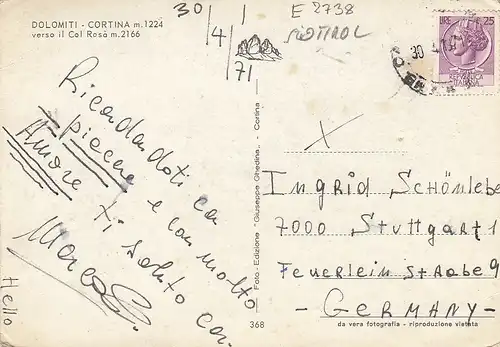 DOLOMITI - CORTINA m.1224
verso il Col Rosà m.2166
30/4/71
E 2738
SÜDTIROL
LIRE 25
30.4.
REPVBBLICA
ITALIANA
Ricordandoti con
piacere e con molto
Amore ti saluto ca-
Marco
Hello
Foto-Edizione "Giuseppe Ghedina" - Cortina
X
Ingrid Schönlebe
7000 Stuttgart 1
Feuerlein Straße 9
- GERMANY -
368
da vera fotografia - riproduzione vietata